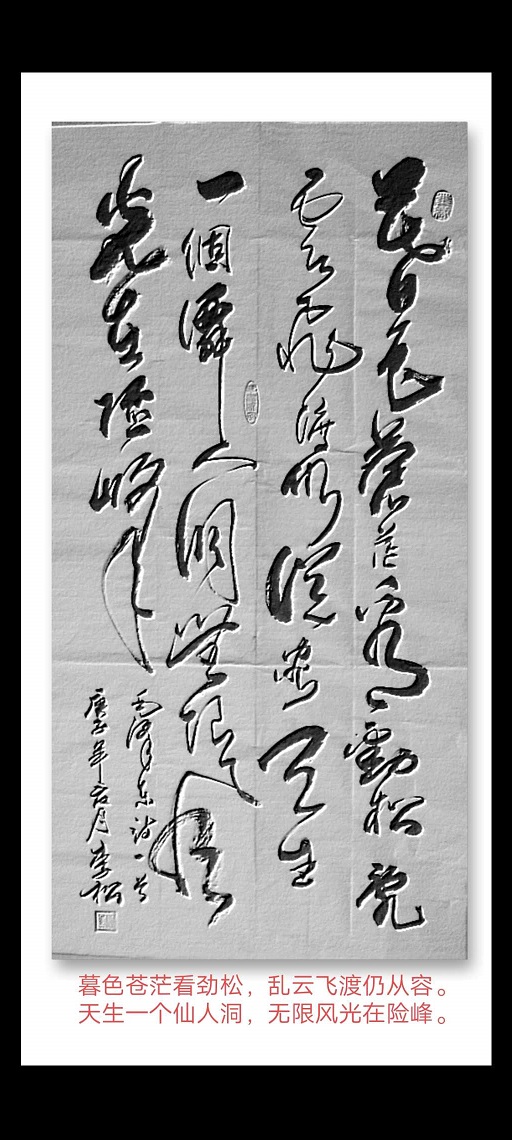 暮色蒼茫看勁松亂
雲飛渡仍從容天生
一個僊人洞無限風
光在险峰
毛澤东诗一首
庚子年六月李松
暮色苍茫看劲松，乱云飞渡仍从容。
天生一个仙人洞，无限风光在险峰。